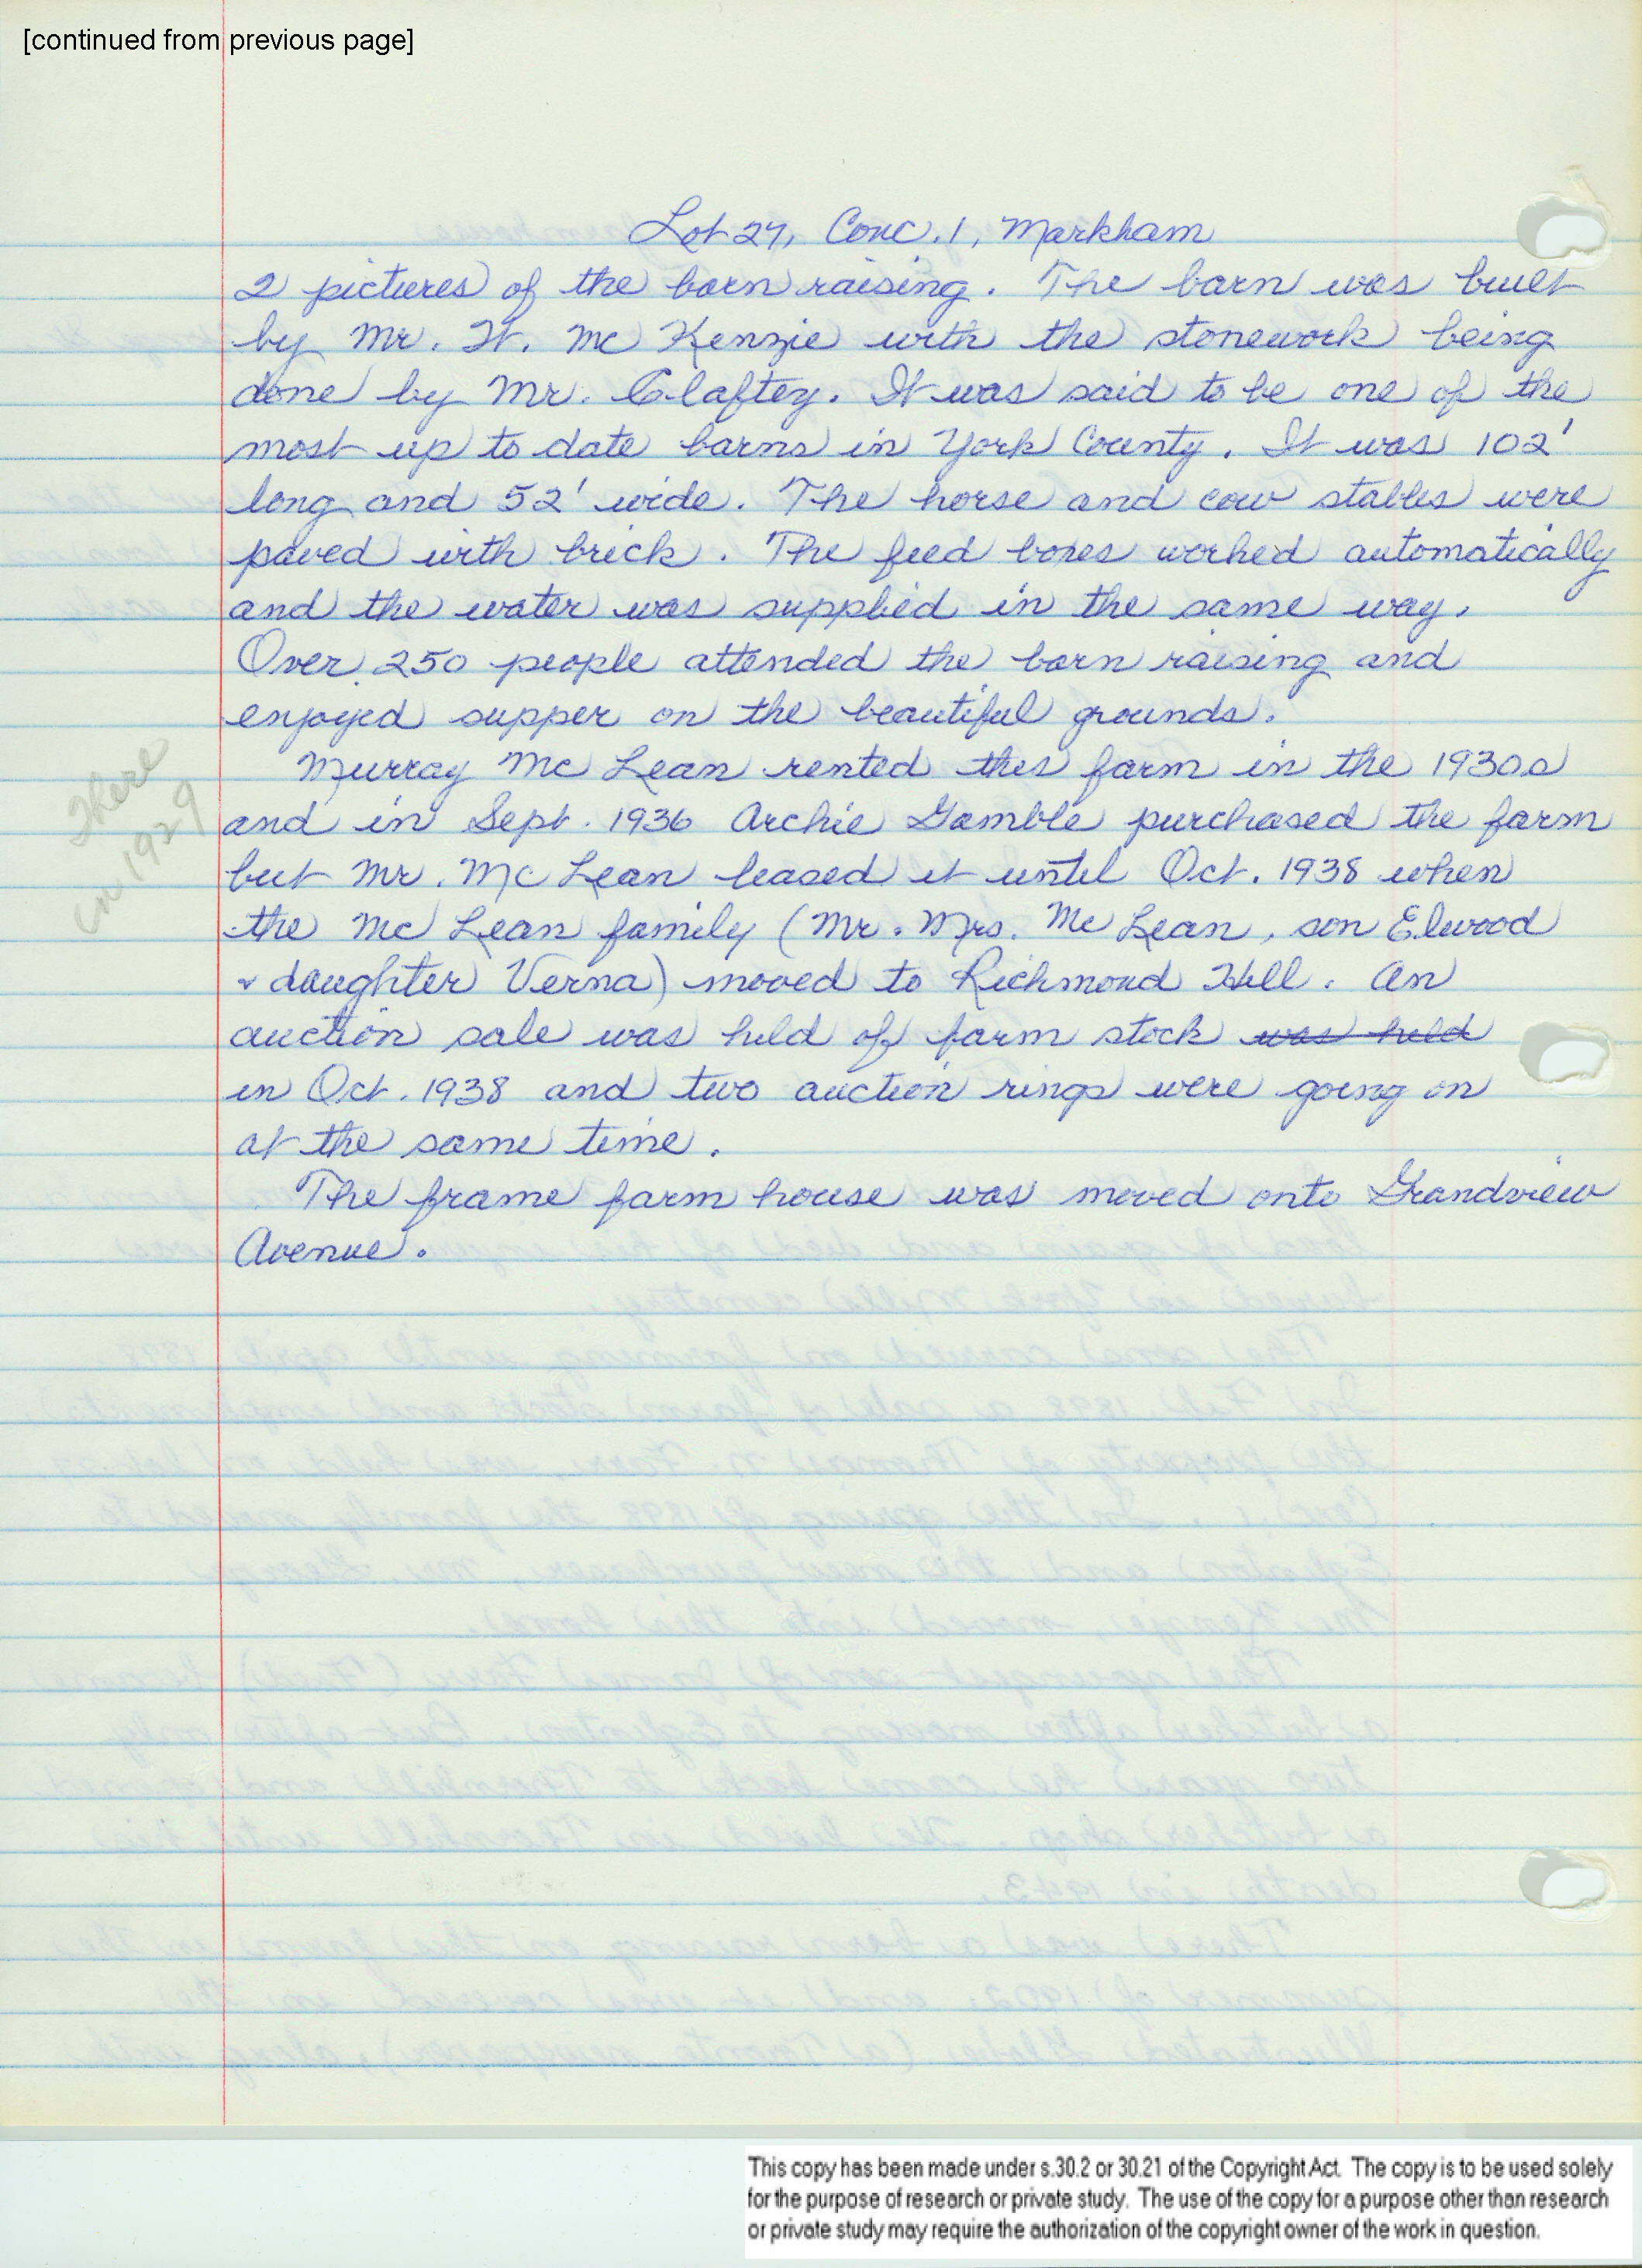 [continued from previous page]
Lot 27, Conc. 1, Markham
2 pictures of the barn raising. The barn was built
by Mr. W. Mc Kenzie with the stonework being
done by Mr. Claftey. It was said to be one of the
most up to date barns in York County. It was 102'
long and 52' wide. The horse and cow stables were
paved with brick. The feed boxes worked automatically
and the water was supplied in the same way.
Over 250 people attended the barn raising and
enjoyed supper on the beautiful grounds.
Murray Mc Lean rented this farm in the 1930s
There
in 1929
and in Sept. 1936 Archie Gamble purchased the farm
but Mr. Mc Lean leased it until Oct. 1938 when
the Mc Lean family (Mr. Mrs. Mc Lean, son Elwood
& daughter Verna) moved to Richmond Hill. An
auction sale was held of farm stock was held
in Oct. 1938 and two auction rings were going on
at the same time.
The frame farm house was moved onto Grandview
Avenue.
This copy has been made under s.30.2 or 30.21 of the Copyright Act. The copy is to be used solely
for the purpose of research or private study. The use of the copy for a purpose other than research
or private study may require the authorization of the copyright owner of the work in question.